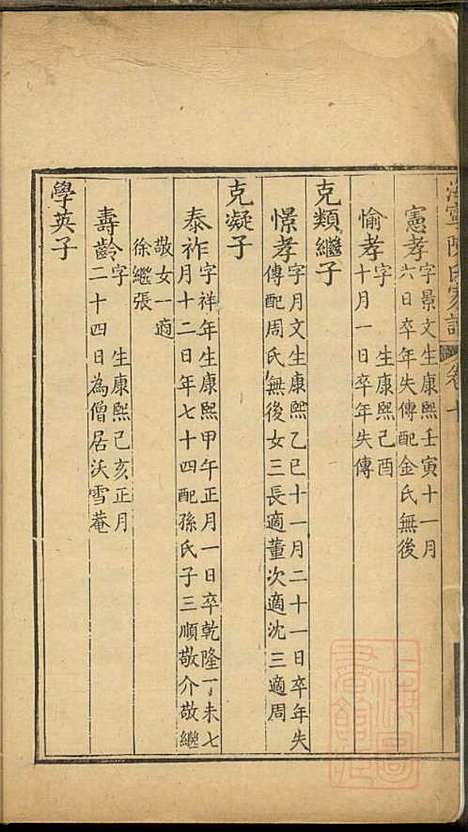 海寧陳氏家譜 卷十
憲孝 字景文生康熙壬寅十一月
六日卒年失傳配金氏無後
愉孝 字 生康熙己酉
十月一日卒年失傳
克類繼子
憬孝 字月文生康熙乙巳十一月二十一日卒年失
傳配周氏無後女三長適董次適沈三適周
克凝子
泰祚 字祥年生康熙甲午正月一日卒乾隆丁未七
月十二日年七十四配孫氏子三順敬介敬繼
敬女一適
徐繼張
壽齡 字 生康熙己亥正月
二十四日為僧居沃雪菴
學英子